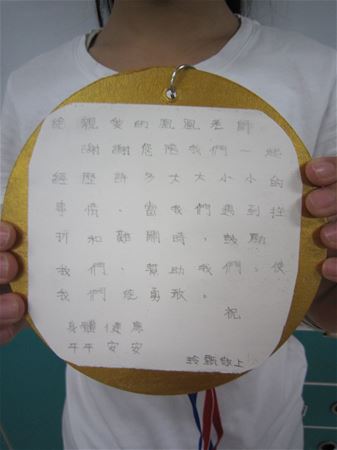 給親愛的鳳凰老師
謝謝您陪我們一起
經歷許多大大小小的
事情，當我們遇到挫
折和難關時，鼓勵
我們、幫助我們，使
我們能勇敢。
祝
身體健康
平平安安
敬上